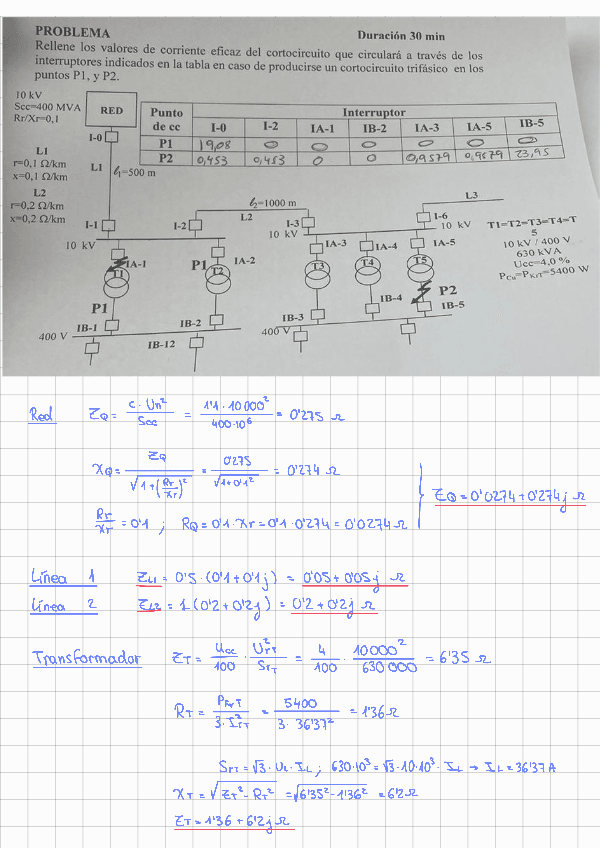 PROBLEMA
Duración 30 min
Rellene los valores de corriente eficaz del cortocircuito que circulará a través de los
interruptores indicados en la tabla en caso de producirse un cortocircuito trifásico en los
puntos P1, y P2.
10 kV
Scc=400 MVA
Rr/Xr=0,1
RED
Punto de cc Interruptor
I-0 I-2 IA-1 IB-2 IA-3 IA-5 IB-5
P1 19,08 0 0 0 0 0 0
P2 0,453 0,453 0 0 0,9579 0,9579 23,95
I-0
L1
r=0,1 Ω/km
x=0,1 Ω/km
L2
r=0,2 Ω/km
x=0,2 Ω/km
L1 l₁=500 m
l₂=1000 m
L2
L3
I-1
I-2
I-3
I-6
10 kV
10 kV
10 kV
T1=T2=T3=T4=T
5
10 kV / 400 V
630 kVA
Ucc=4,0 %
PCu=PKrT=5400 W
IA-1
P1
IA-2
IA-3
IA-4
IA-5
T1
T2
T3
T4
T5
P1
P2
IB-1
IB-2
IB-3
IB-4
IB-5
400 V
IB-12
400 V
Red ZQ = c · Un² / Scc = 1'1 · 10000² / 400·10⁶ = 0'275 Ω
XQ = ZQ / √1+(Rr/Xr)² = 0'275 / √1+0'1² = 0'274 Ω
ZQ = 0'0274 + 0'274j Ω
Rr/Xr = 0'1 ; RQ = 0'1 · Xr = 0'1 · 0'274 = 0'0274 Ω
Línea 1 ZL1 = 0'5 · (0'1 + 0'1j) = 0'05 + 0'05j Ω
Línea 2 ZL2 = 1 (0'2 + 0'2j) = 0'2 + 0'2j Ω
Transformador ZT = Ucc/100 · UrT²/SrT = 4/100 · 10000²/630000 = 6'35 Ω
RT = PkrT / 3·IrT² = 5400 / 3·36'37² = 1'36 Ω
SrT = √3 · UL · IL ; 630·10³ = √3 · 10·10³ · IL → IL = 36'37 A
XT = √ZT² - RT² = √6'35² - 1'36² = 6'2 Ω
ZT = 1'36 + 6'2j Ω